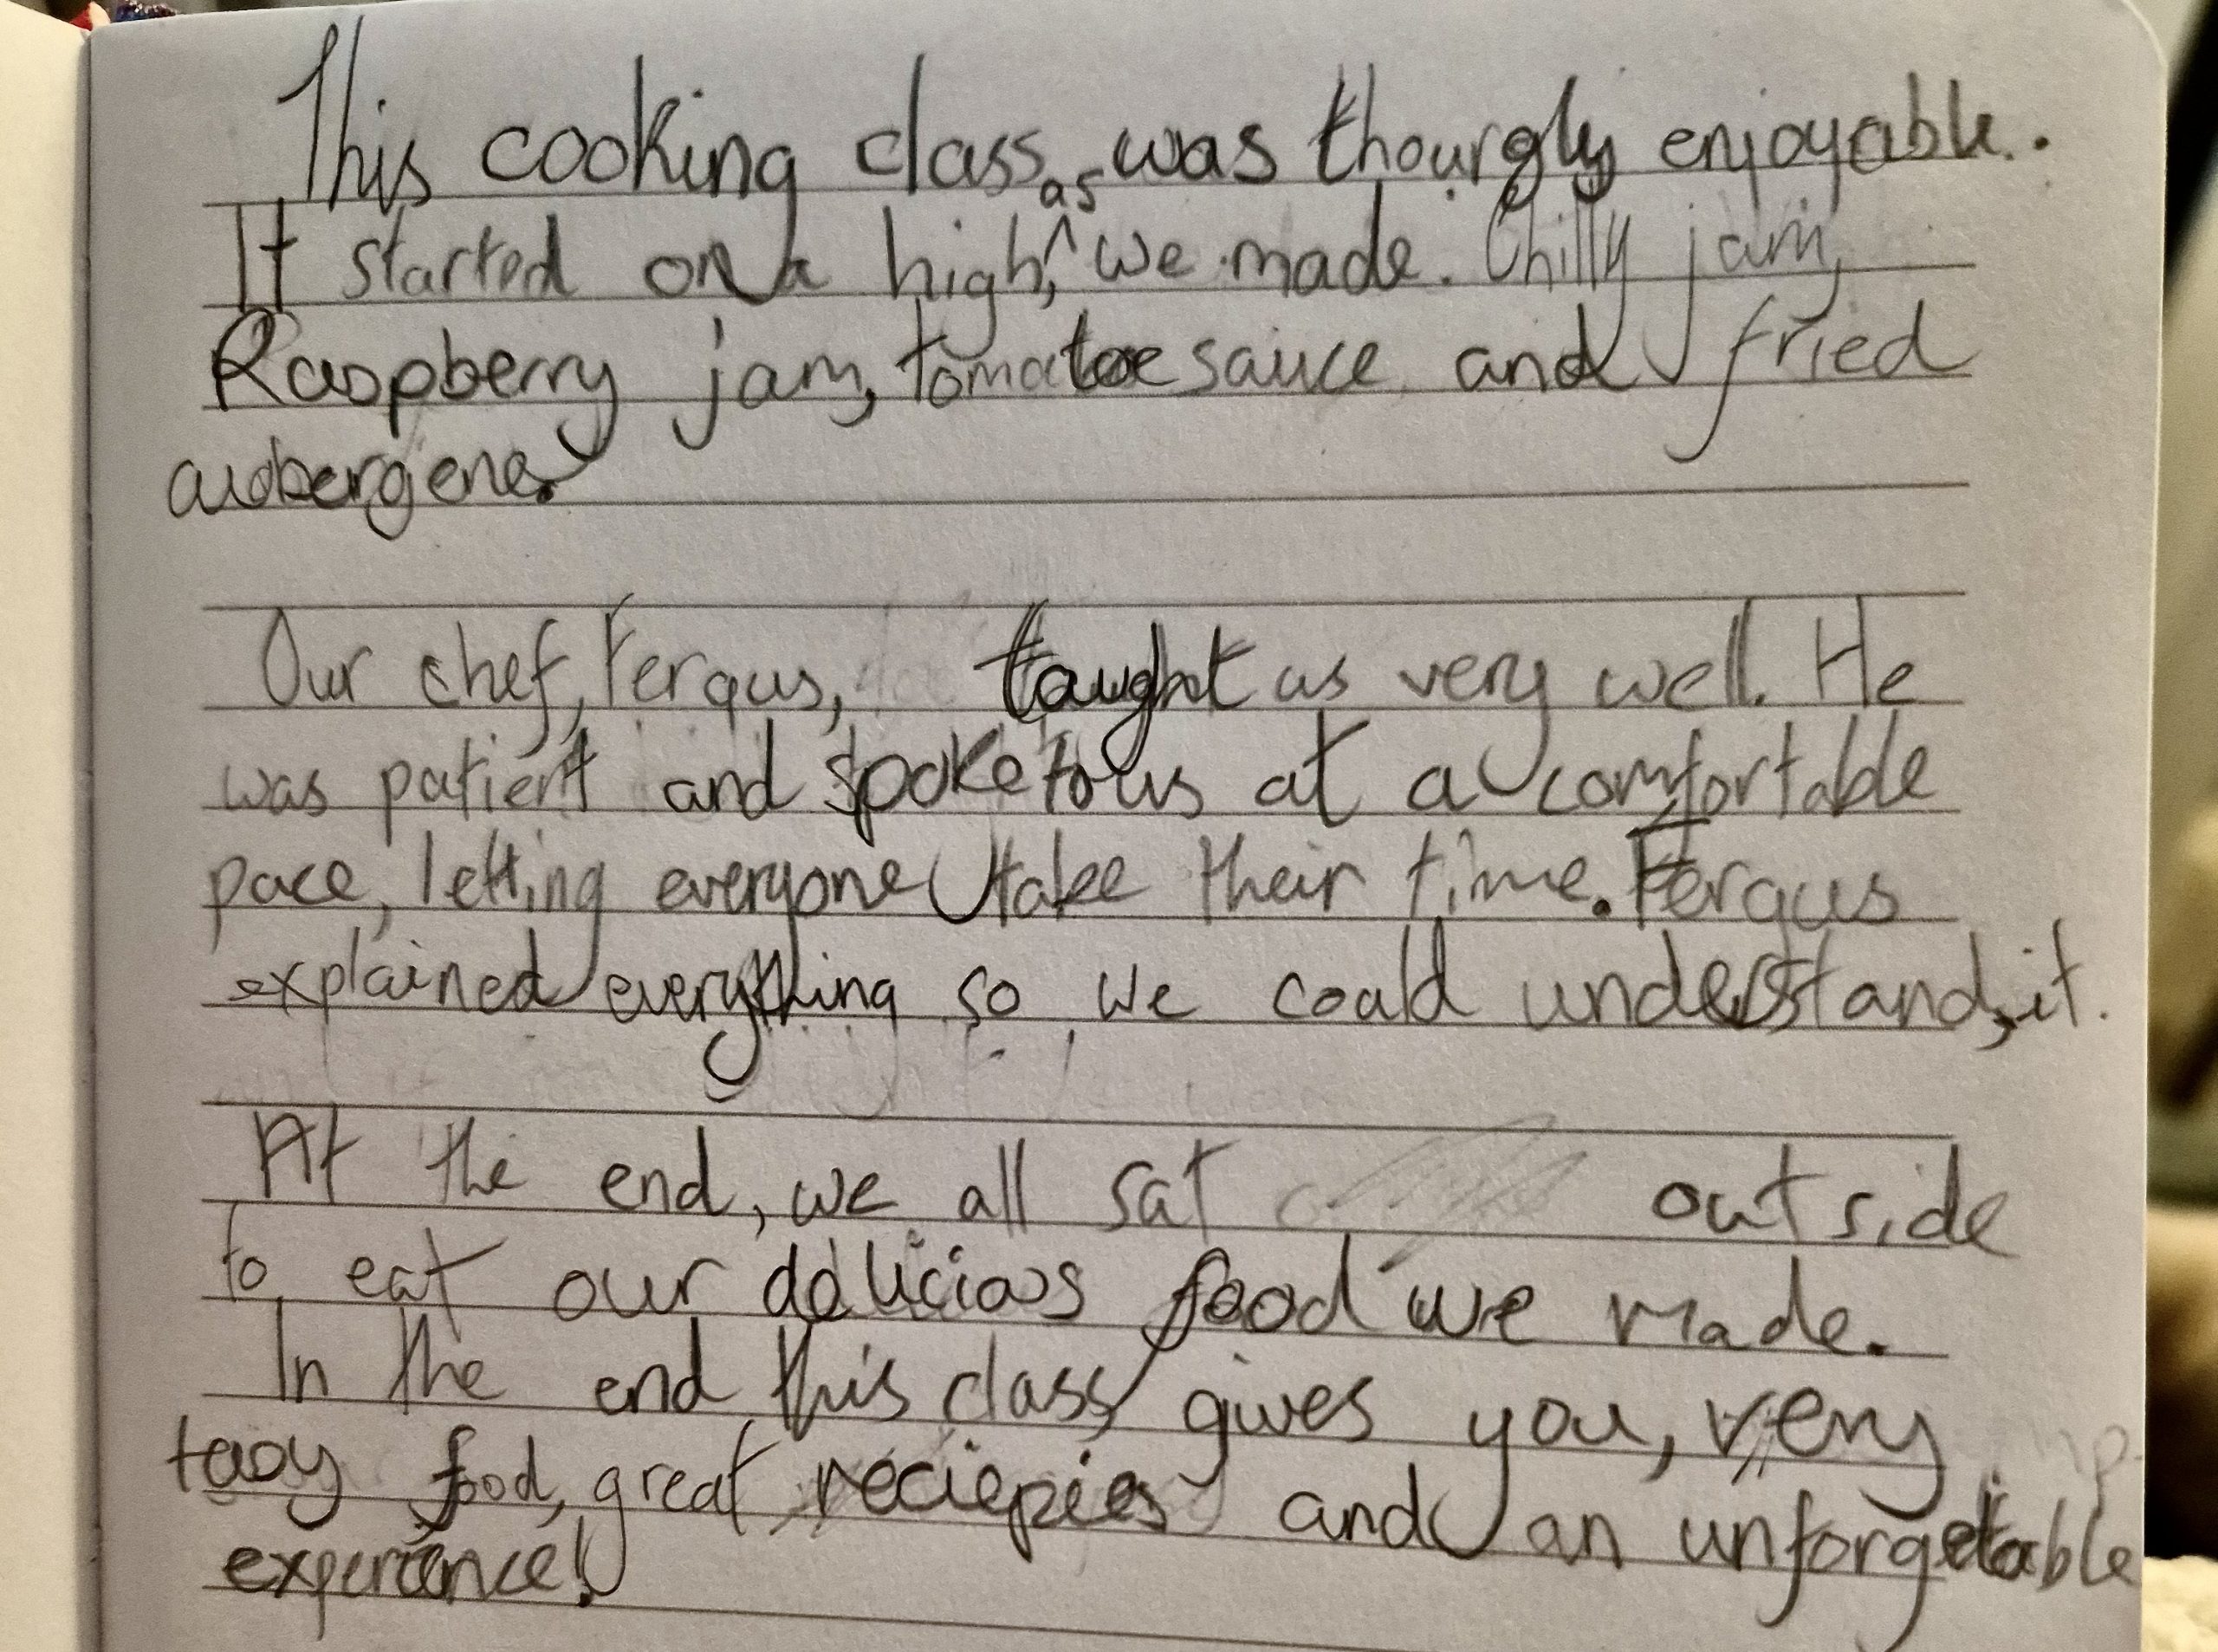 This cooking class was thourgly enjoyable.
It started on a high, as we made. Chilly jam,
Raspberry jam, tomatoe sauce and fried
aubergene.
Our chef, Fergus, taught us very well. He
was patient and spoke to us at a comfortable
pace, letting everyone take their time. Fergus
explained everything so we could understand, it.
At the end, we all sat outside
to eat our delicious food we made.
In the end this class gives you, very
food, great reciepies and an unforgetable
experience!